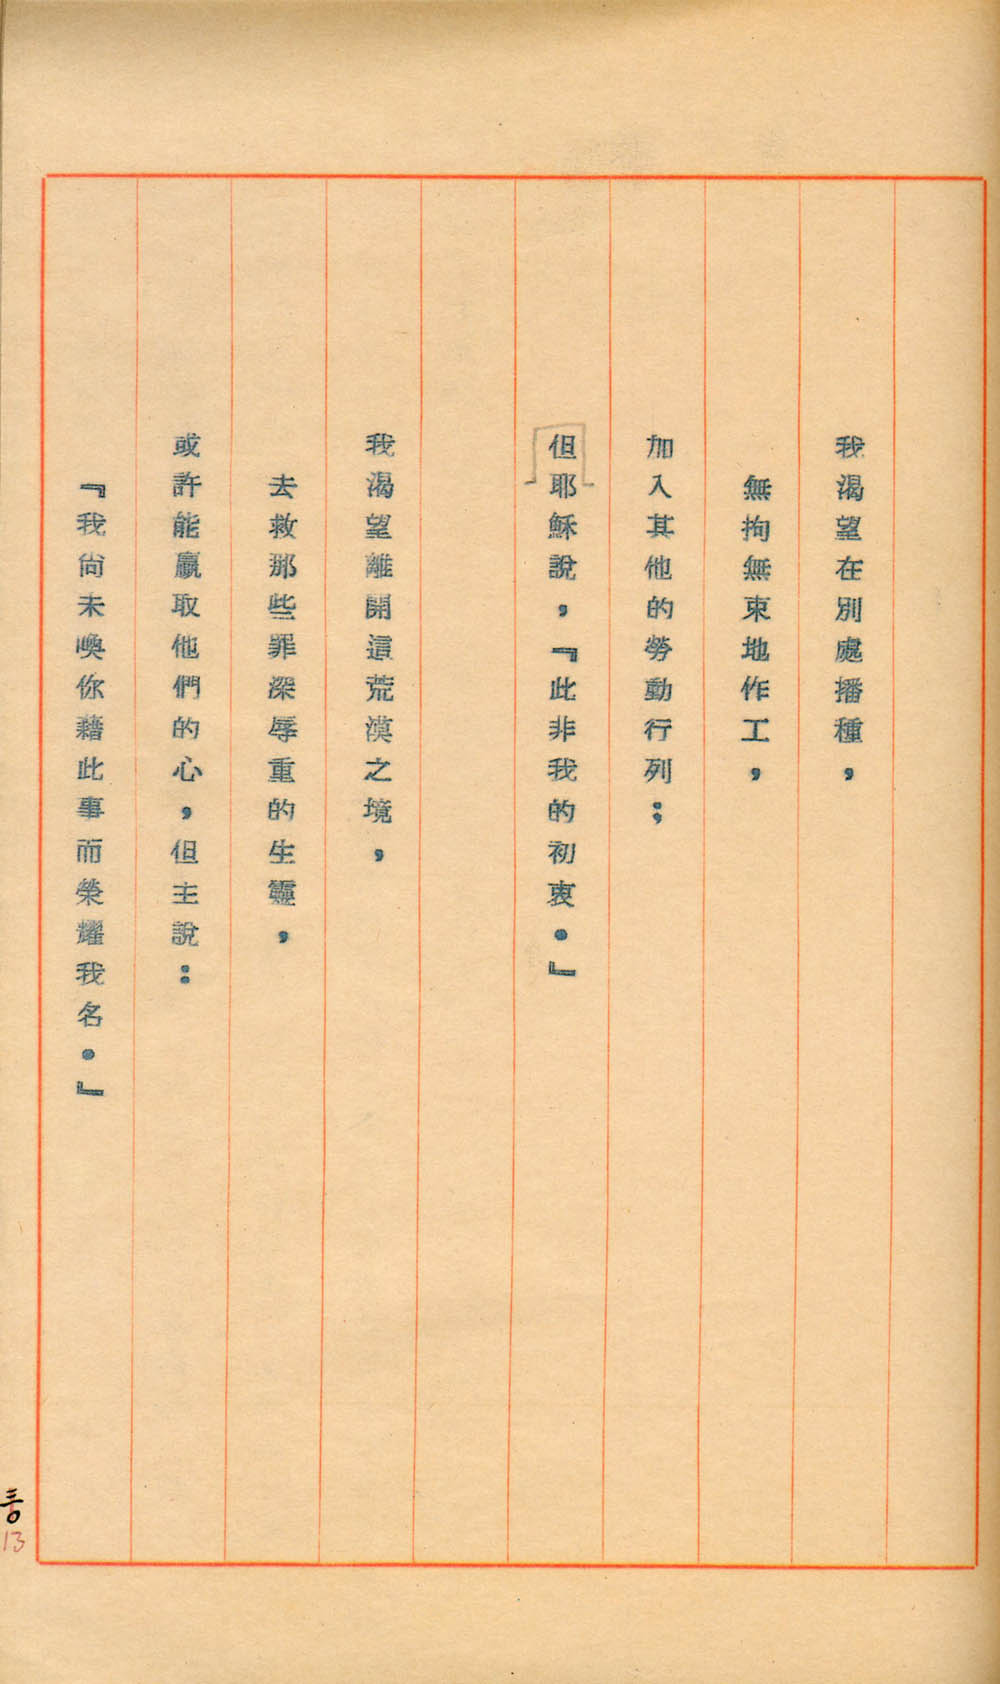 我渴望在別處播種，
無拘無束地作工，
加入其他的勞動行列；
但耶穌說，『此非我的初衷．』
我渴望離開這荒漠之境，
去救那些罪深辱重的生靈，
或許能贏取他們的心，但主說：
『我尙未喚你藉此事而榮耀我名．』
13